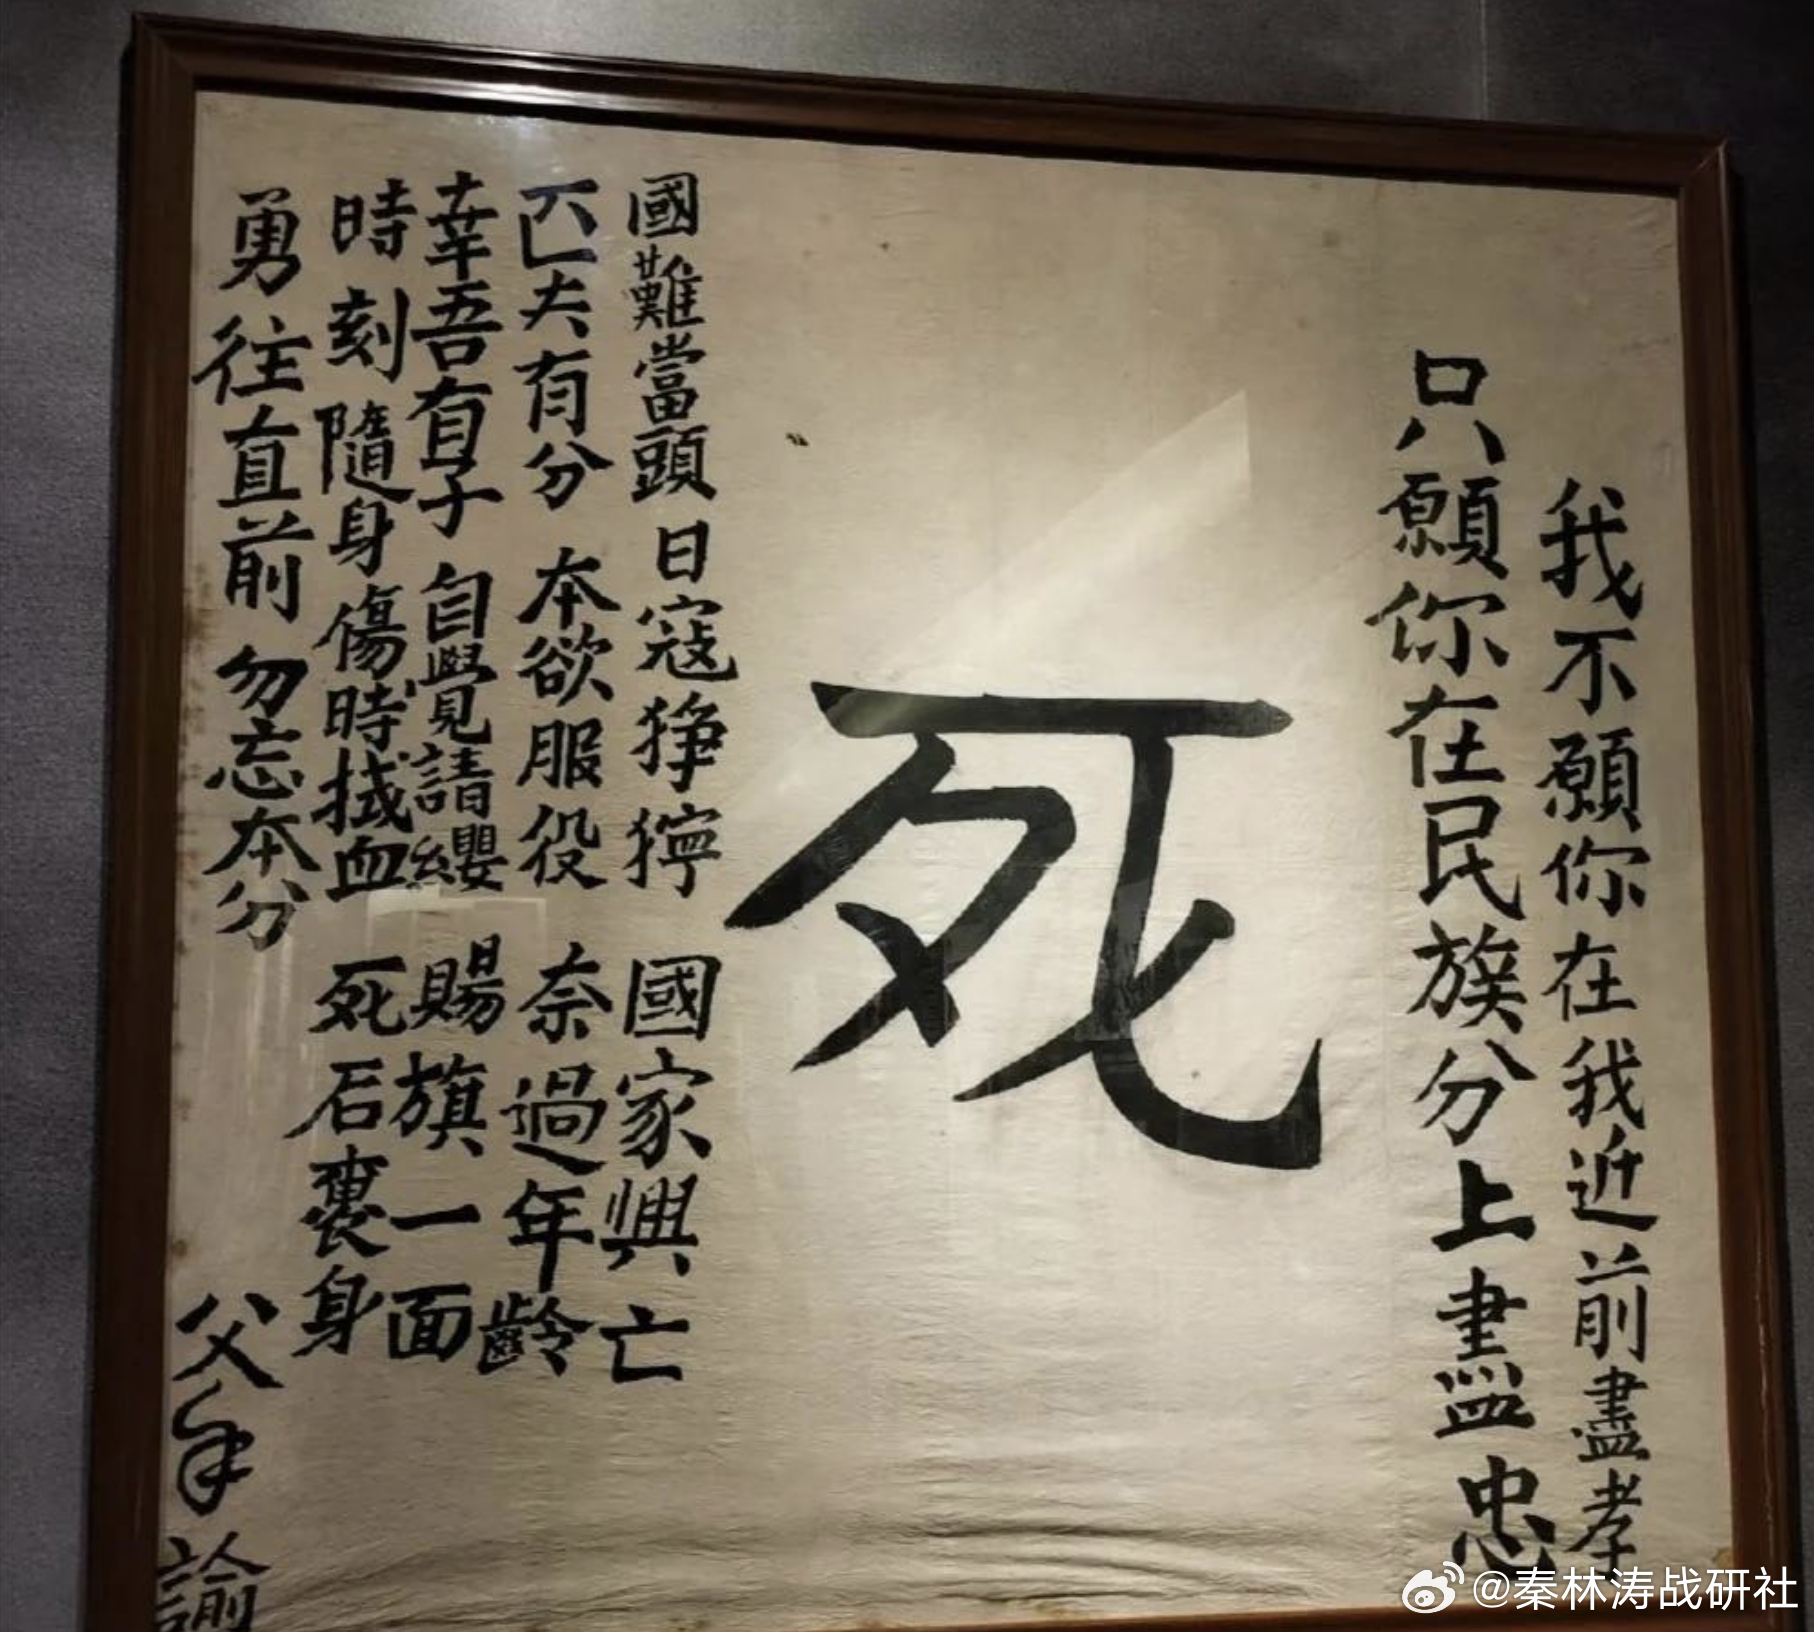 我不願你在我近前盡孝
只願你在民族分上盡忠
死
國難當頭 日寇猙獰 國家興亡
匹夫有分 本欲服役 奈過年齡
幸吾有子 自覺請纓 賜旗一面
時刻隨身 傷時拭血 死后裹身
勇往直前 勿忘本分
父手諭
@秦林涛战研社